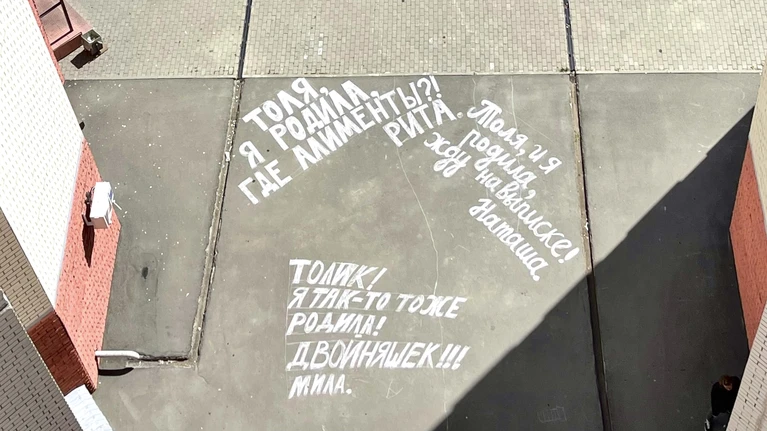 ТОЛЯ,
Я РОДИЛА.
ГДЕ АЛИМЕНТЫ?!
РИТА.
Толя, и я
родила,
жду на выписке!
Наташа.
ТОЛИК!
Я ТАК-ТО ТОЖЕ
РОДИЛА!
ДВОЙНЯШЕК!!!
МИЛА.